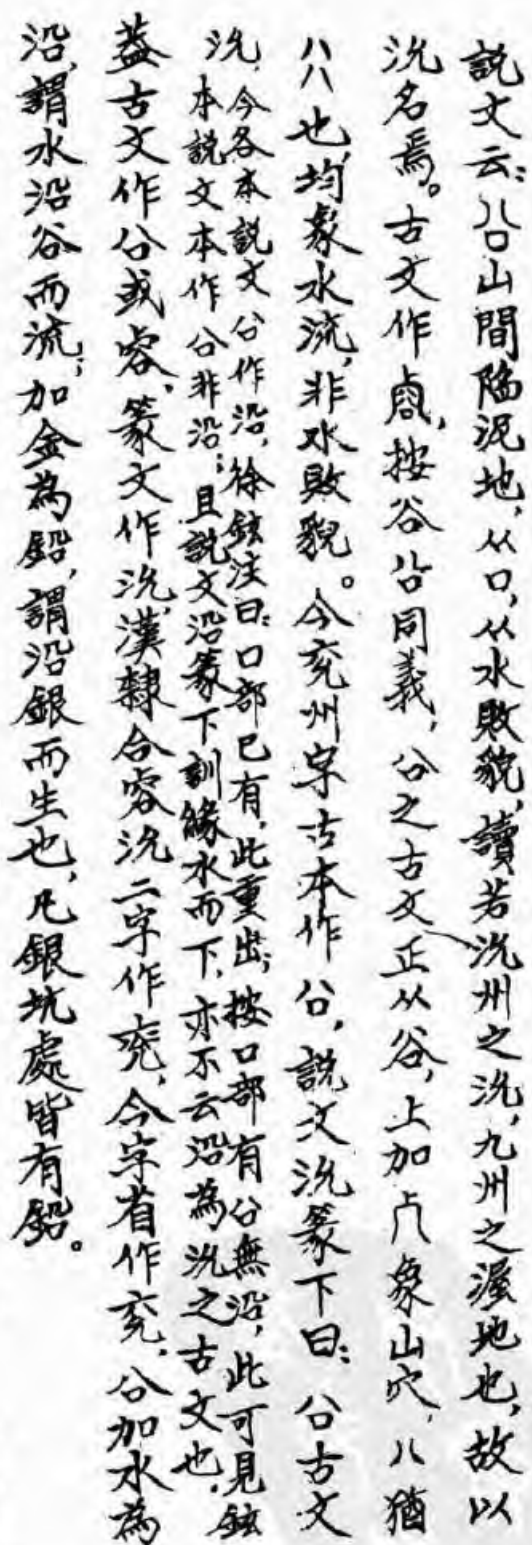 説文云：㕣山間陷泥地，从口，从水敗貌，讀若沇州之沇，九州之渥地也，故以
沇名焉。古文作㕡，按谷㕣同義，㕣之古文正从谷，上加𠧞象山穴，八猶
八八也，均象水流，非水敗貌。今兗州字古本作㕣，説文沇篆下曰：㕣古文
沇，今各本説文㕣作沿，徐鉉注曰：口部已有，此重出；按口部有㕣無沿，此可見鉉
本説文本作㕣非沿；且説文沿篆下訓緣水而下，亦不云沿為沇之古文也，
葢古文作㕣或容，篆文作沇，漢隸合容沇二字作兗，今字省作兖，㕣加水為
沿，謂水沿谷而流；加金為鉛，謂沿銀而生也，凡銀坑處皆有鉛。